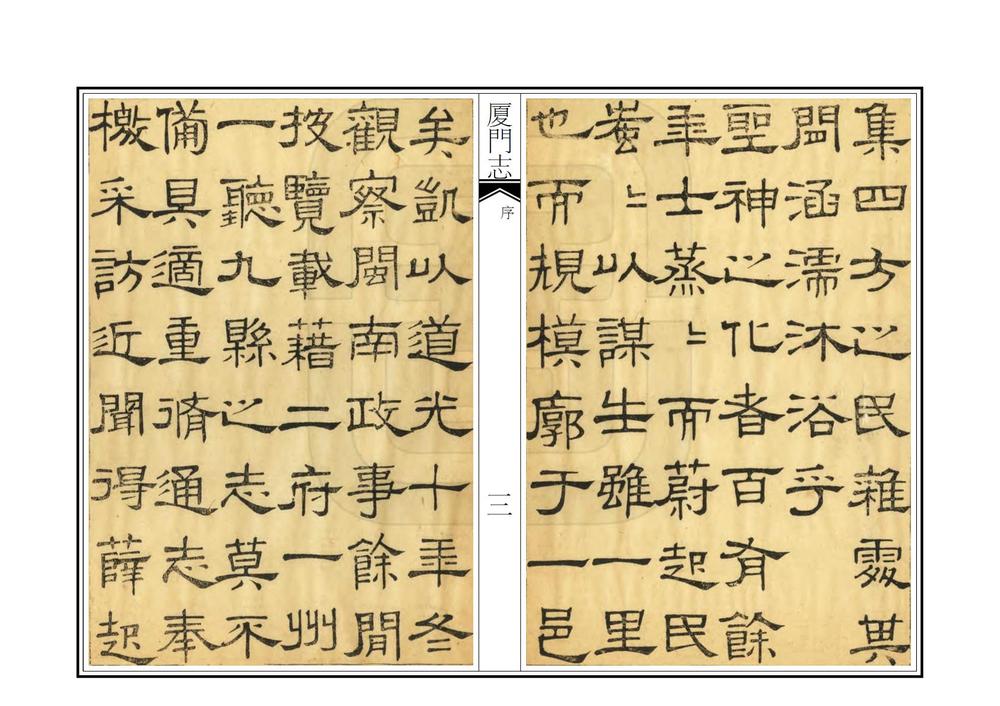 集四方之民雜處其
間涵濡沐浴乎
聖神之化者百有餘
年士蒸〻而蔚起民
蚩〻以謀生雖一里
也而規模廓于一邑
厦門志
序
三
矣凱以道光十年冬
觀察閩南政事餘閒
按覽載藉二府一州
一聽九縣之志莫不
備具適重脩通志奉
檄采訪近聞得薛起